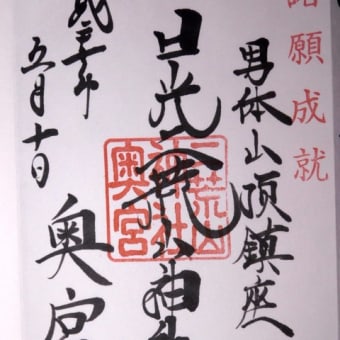 諸願成就
男体山頂鎮座
日光二荒山神社
奥宮
五月十日
二荒山
神社
奥宮